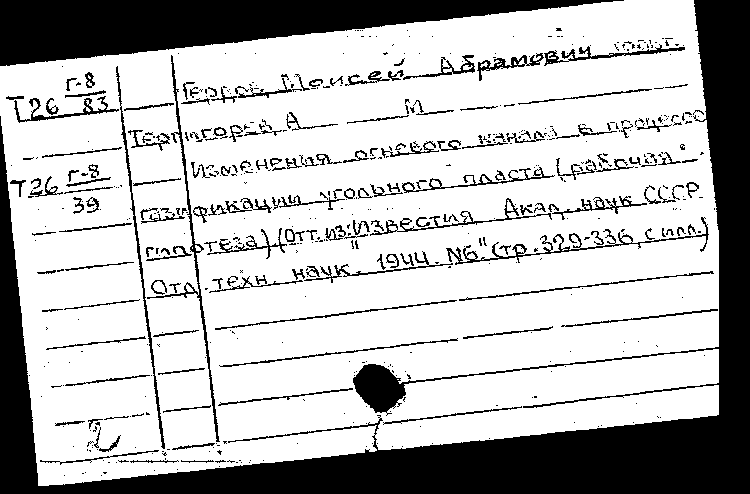 Т26 Г-8/83
Моисей Абрамович
Терпигорев, А М
Изменения огневого канала в процессе
Т26 Г-8/39
газификации угольного пласта (рабочая
гипотеза) (Отт. из: "Известия Акад. наук СССР
Отд. техн. наук". 1944. №6." (тр. 329-336, с илл.)
2